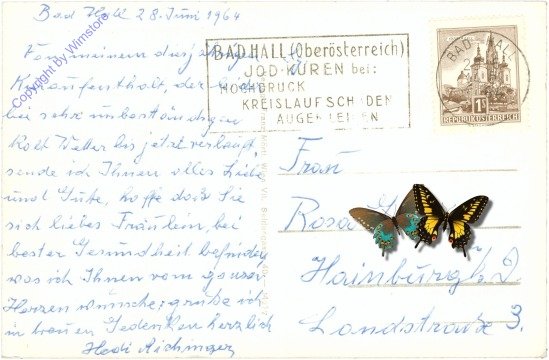 Bad Hall 28. Juni 1964
Von meinem derzeitigen
Kuraufenthalt, der
bei sehr unbeständigen
Wetter bis jetzt verlauft,
sende ich Ihnen alles Liebe
und Gute, hoffe daß Sie
sich liebes Fräulein, bei
bester Gesundheit befinden
was ich Ihnen vom ganzen
Herzen wünsche; grüße ich
in treuen Gedenken herzlich
Hedi Aichinger
Copyright by Wimstore
BAD HALL (Oberösterreich)
JOD-KUREN bei:
HOCHDRUCK
KREISLAUFSCHÄDEN
AUGENLEIDEN
BAD HALL
1S
REPUBLIK ÖSTERREICH
Frau
Rosa
Hainburg a. D.
Landstraße 3.